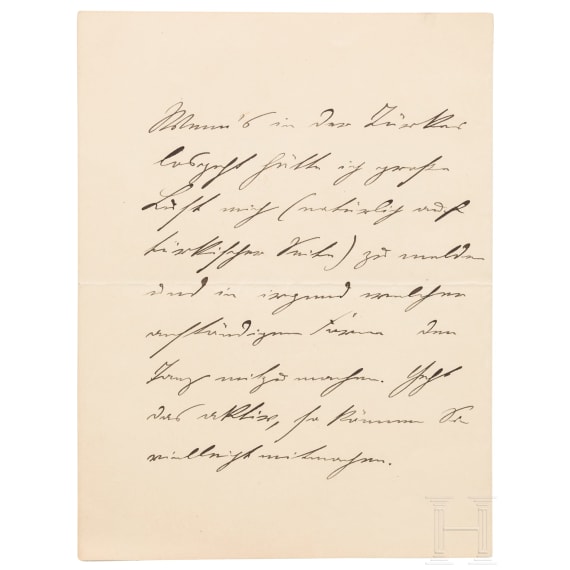 Wenn's in der Türkei
losgeht hätte ich große
Lust mich (natürlich auf
türkischer Seite) zu melden
und in irgend welcher
anständigen Form den
Tanz mitzumachen. Geht
das aktiv, so können Sie
vielleicht mitmachen.
H